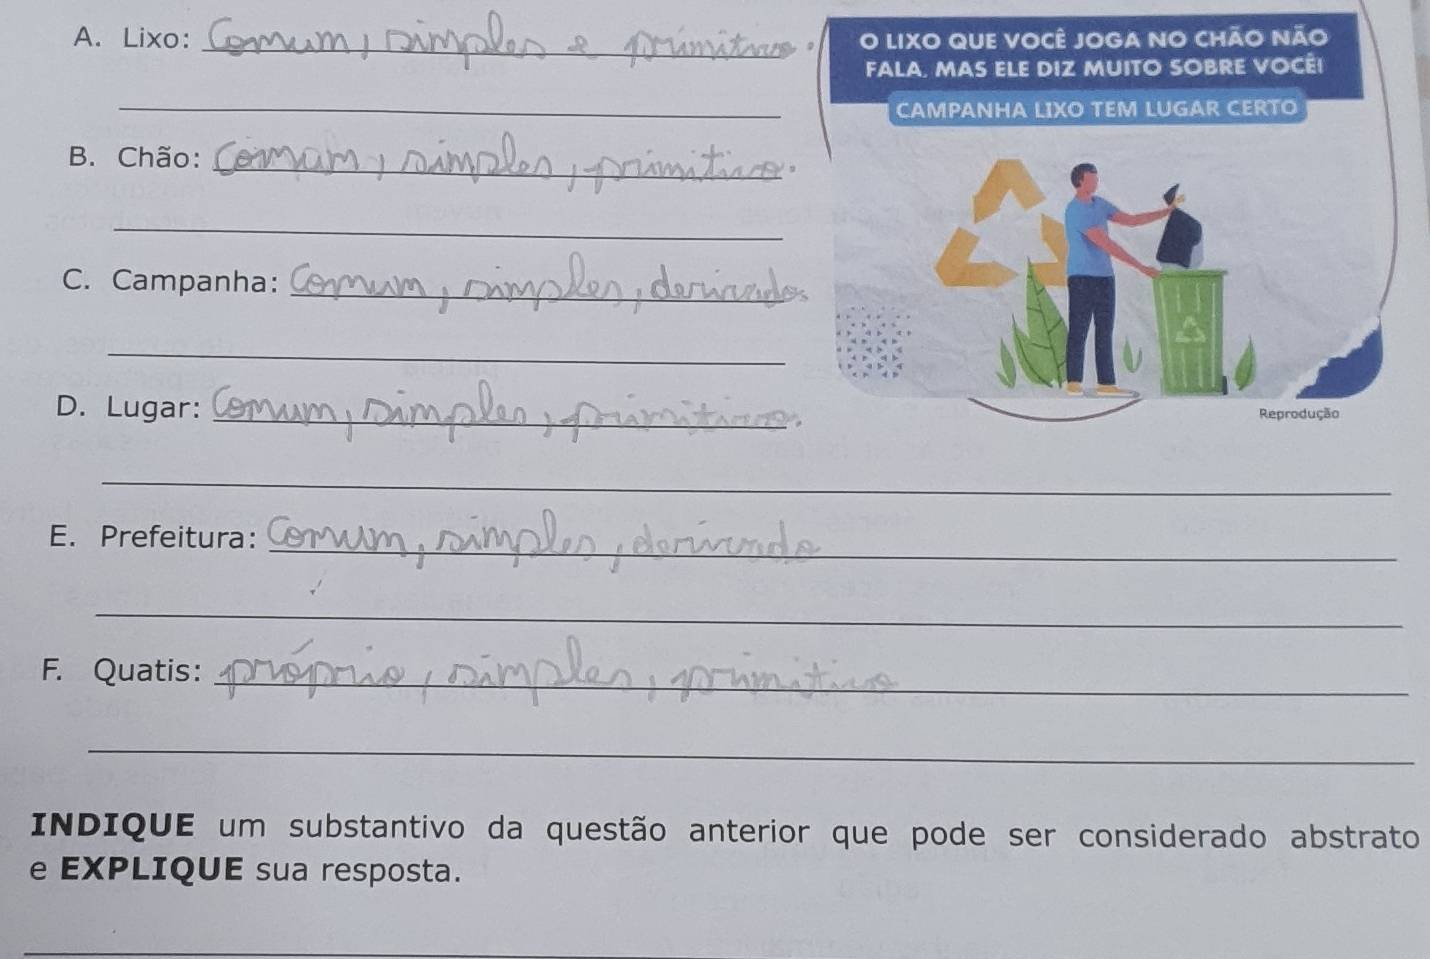 A. Lixo: Comum, simples e primitivo.
O LIXO QUE VOCÊ JOGA NO CHÃO NÃO
FALA. MAS ELE DIZ MUITO SOBRE VOCÊ!
CAMPANHA LIXO TEM LUGAR CERTO
B. Chão: Comum, simples, primitivo.
C. Campanha: Comum, simples, derivados
D. Lugar: Comum, simples, primitivo.
Reprodução
E. Prefeitura: Comum, simples, derivado
F. Quatis: próprio, simples, primitivo
INDIQUE um substantivo da questão anterior que pode ser considerado abstrato
e EXPLIQUE sua resposta.